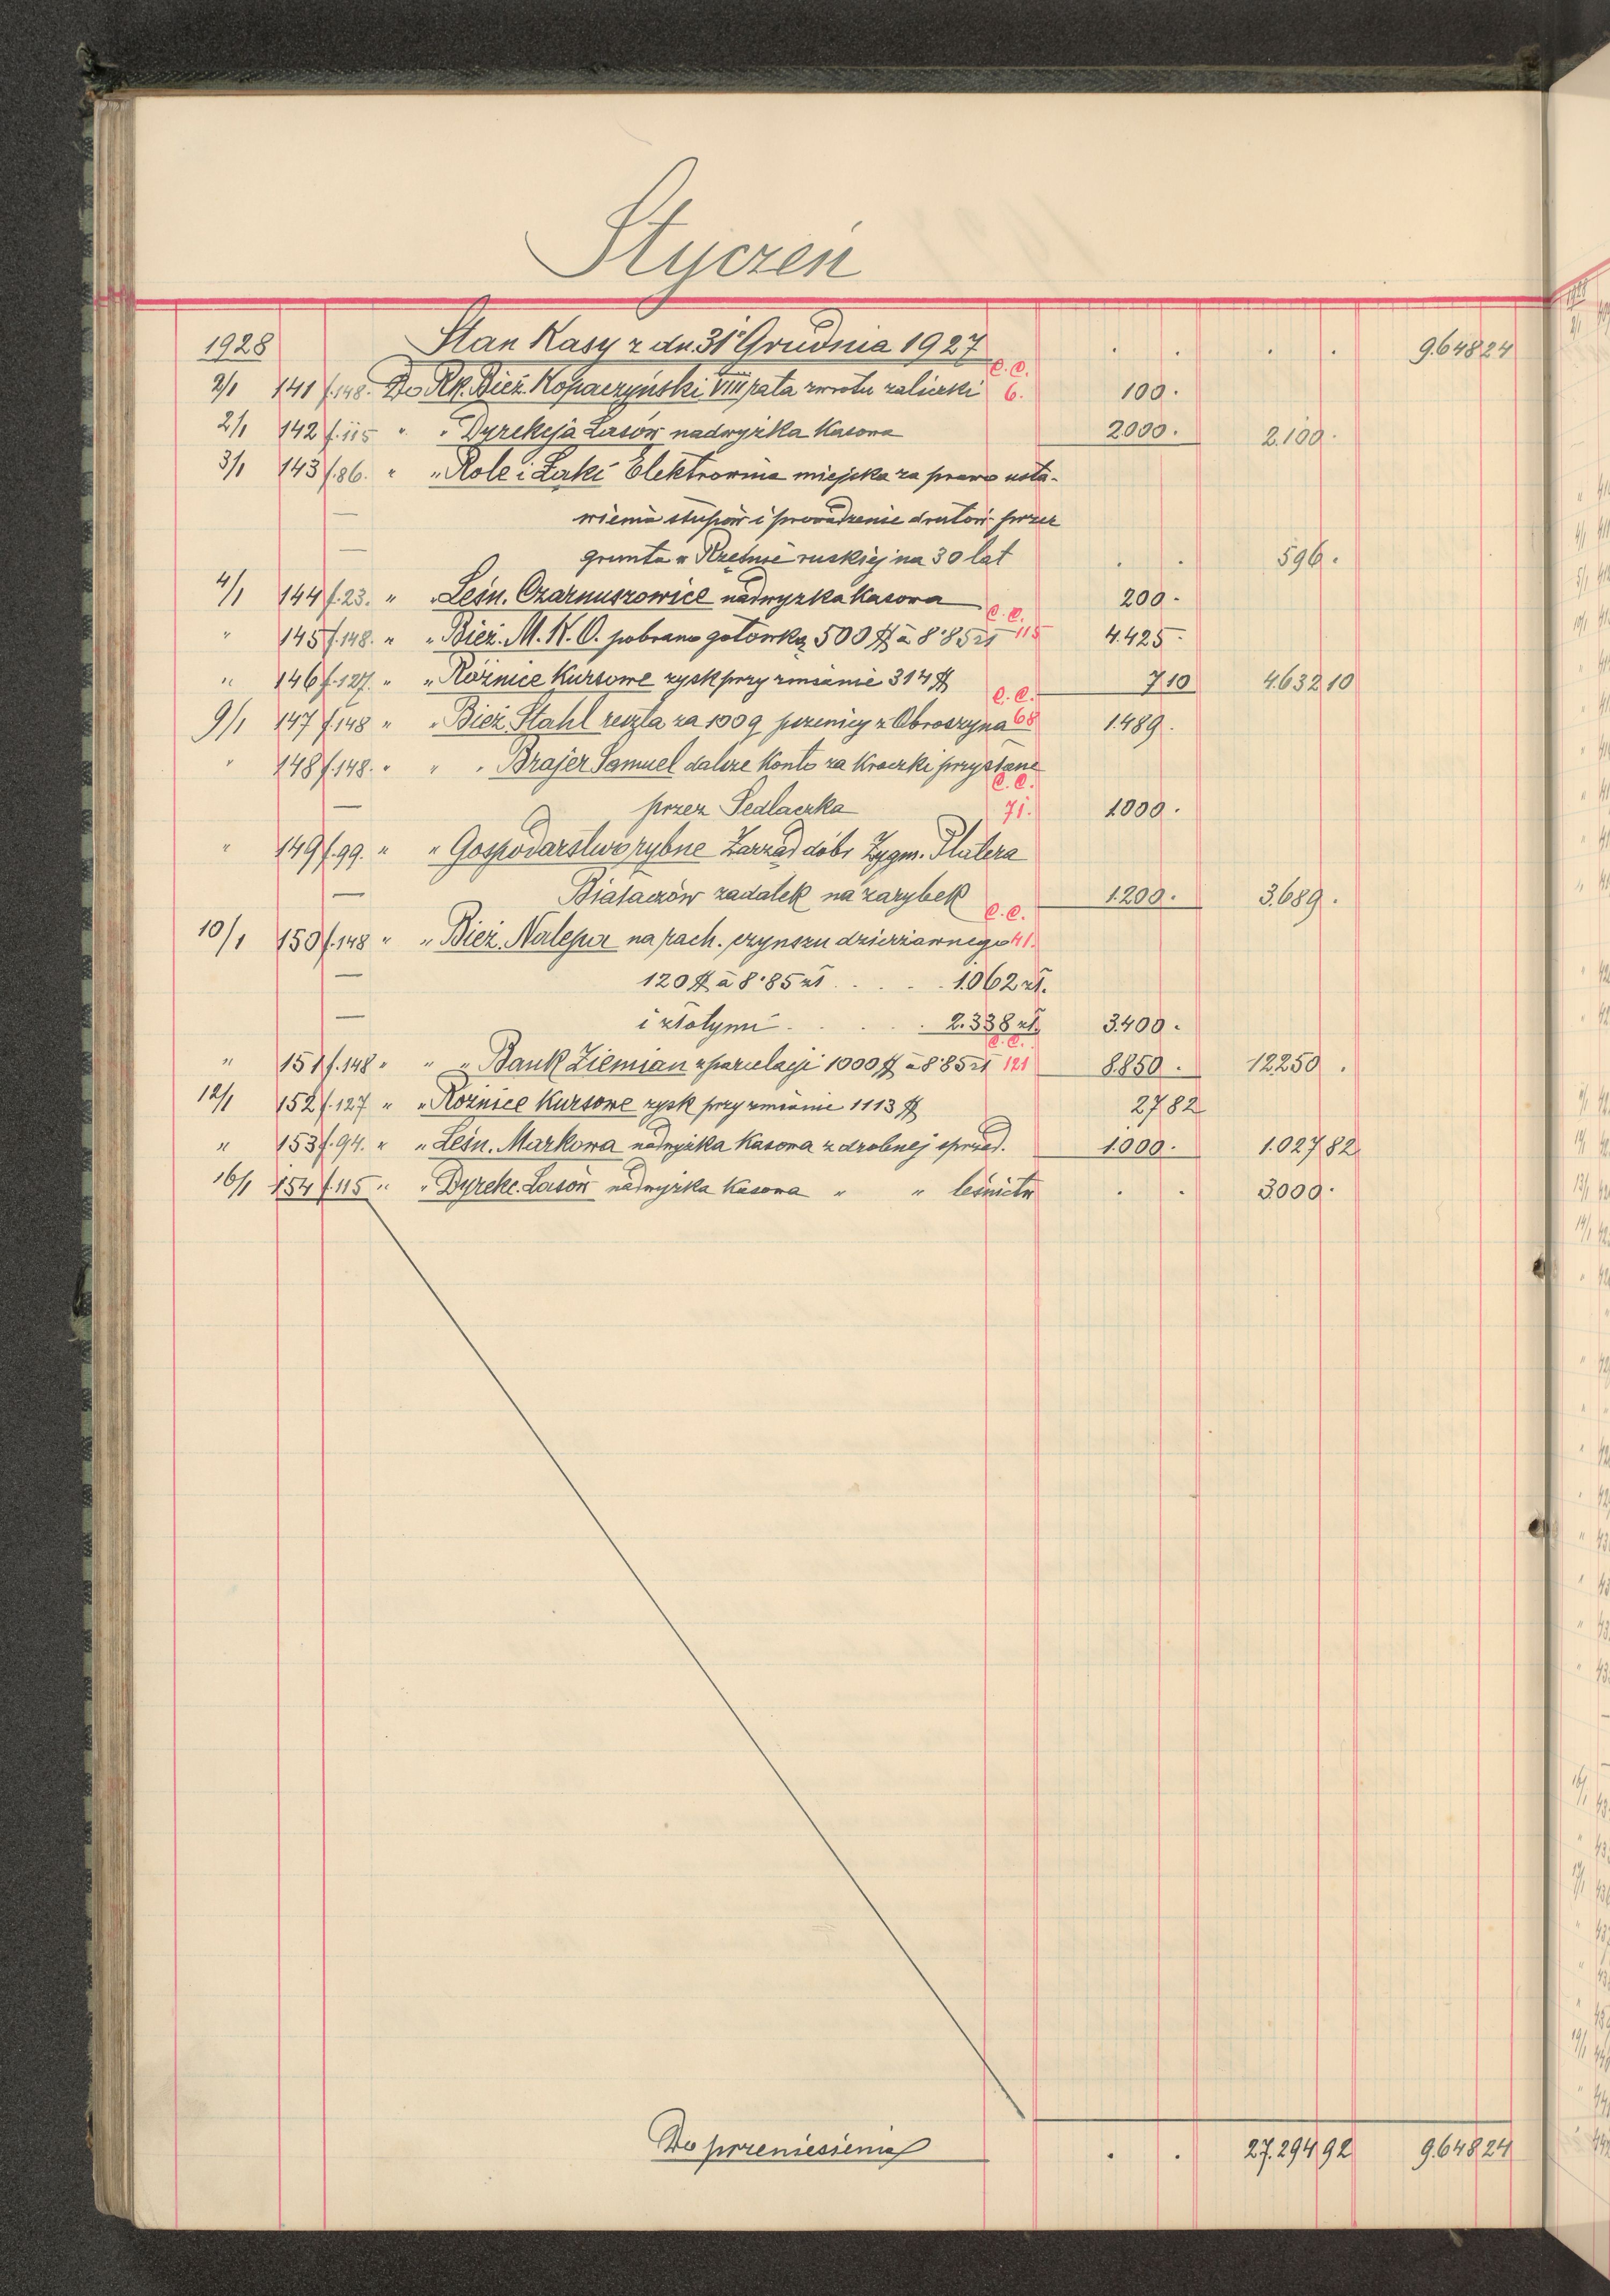 Styczeń
1928 Stan Kasy z dn. 31 Grudnia 1927 . . . . 9.648 24
2/1 141 f.148. Do Rk. Bież. Kopaczyński VIII rata zwrotu zaliczki C.C. 6. 100.
2/1 142 f.115 " " Dyrekcja Lasów nadwyżka Kasowa 2000. 2.100.
3/1 143 f.86. " " Role i Łąki Elektrownia miejska za prawo usta-
— wienia słupów i prowadzenie drutów przez
— grunta w Rzęśnie ruskiej na 30 lat . . 596.
4/1 144 f.23. " " Leśn. Czarnuszowice nadwyżka Kasowa 200.
" 145 f.148. " " Bież. M.K.O. pobrano gotówką 500 $ à 8.85 zł C.C. 115 4.425.
" 146 f.127. " " Różnice Kursowe zysk przy zmianie 314 $ 7 10 4.632 10
9/1 147 f.148 " " Bież. Stahl reszta za 100 q pszenicy z Obroszyna C.C. 68 1.489.
" 148 f.148. " " " Brajer Samuel dalsze Konto za Kroczki przysłane
— przez Sedlaczka C.C. 71. 1000.
" 149 f.99. " " Gospodarstwo rybne Zarząd dóbr Zygm. Platera
— Białaczów zadatek na zarybek 1.200. 3.689.
10/1 150 f.148 " " Bież. Nalepa na rach. czynszu dzierżawnego C.C. 41.
— 120 $ à 8.85 zł . . . . 1.062 zł.
— i złotymi . . . . 2.338 zł. 3.400.
" 151 f.148 " " " Bank Ziemian z parcelacji 1000 $ à 8.85 zł C.C. 121 8.850. 12250.
12/1 152 f.127 " " Różnice Kursowe zysk przy zmianie 1113 $ 27 82
" 153 f.94. " " Leśn. Markowa nadwyżka Kasowa z drobnej sprzed. 1.000. 1.027 82
16/1 154 f.115 " " Dyrekc. Lasów nadwyżka Kasowa " " leśnictw . . 3.000.
Do przeniesienia . . 27.294 92 9.648 24